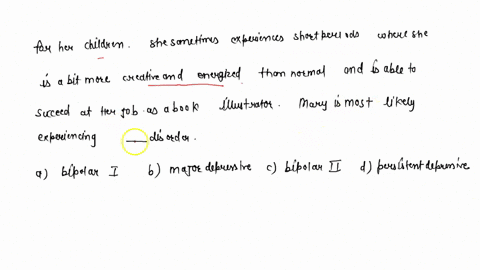 for her children. She sometimes experiences short periods where she
is a bit more creative and energized than normal and is able to
succeed at her job as a book illustrator. Mary is most likely
experiencing ___ disorder.
a) bipolar I b) major depressive c) bipolar II d) persistent depressive